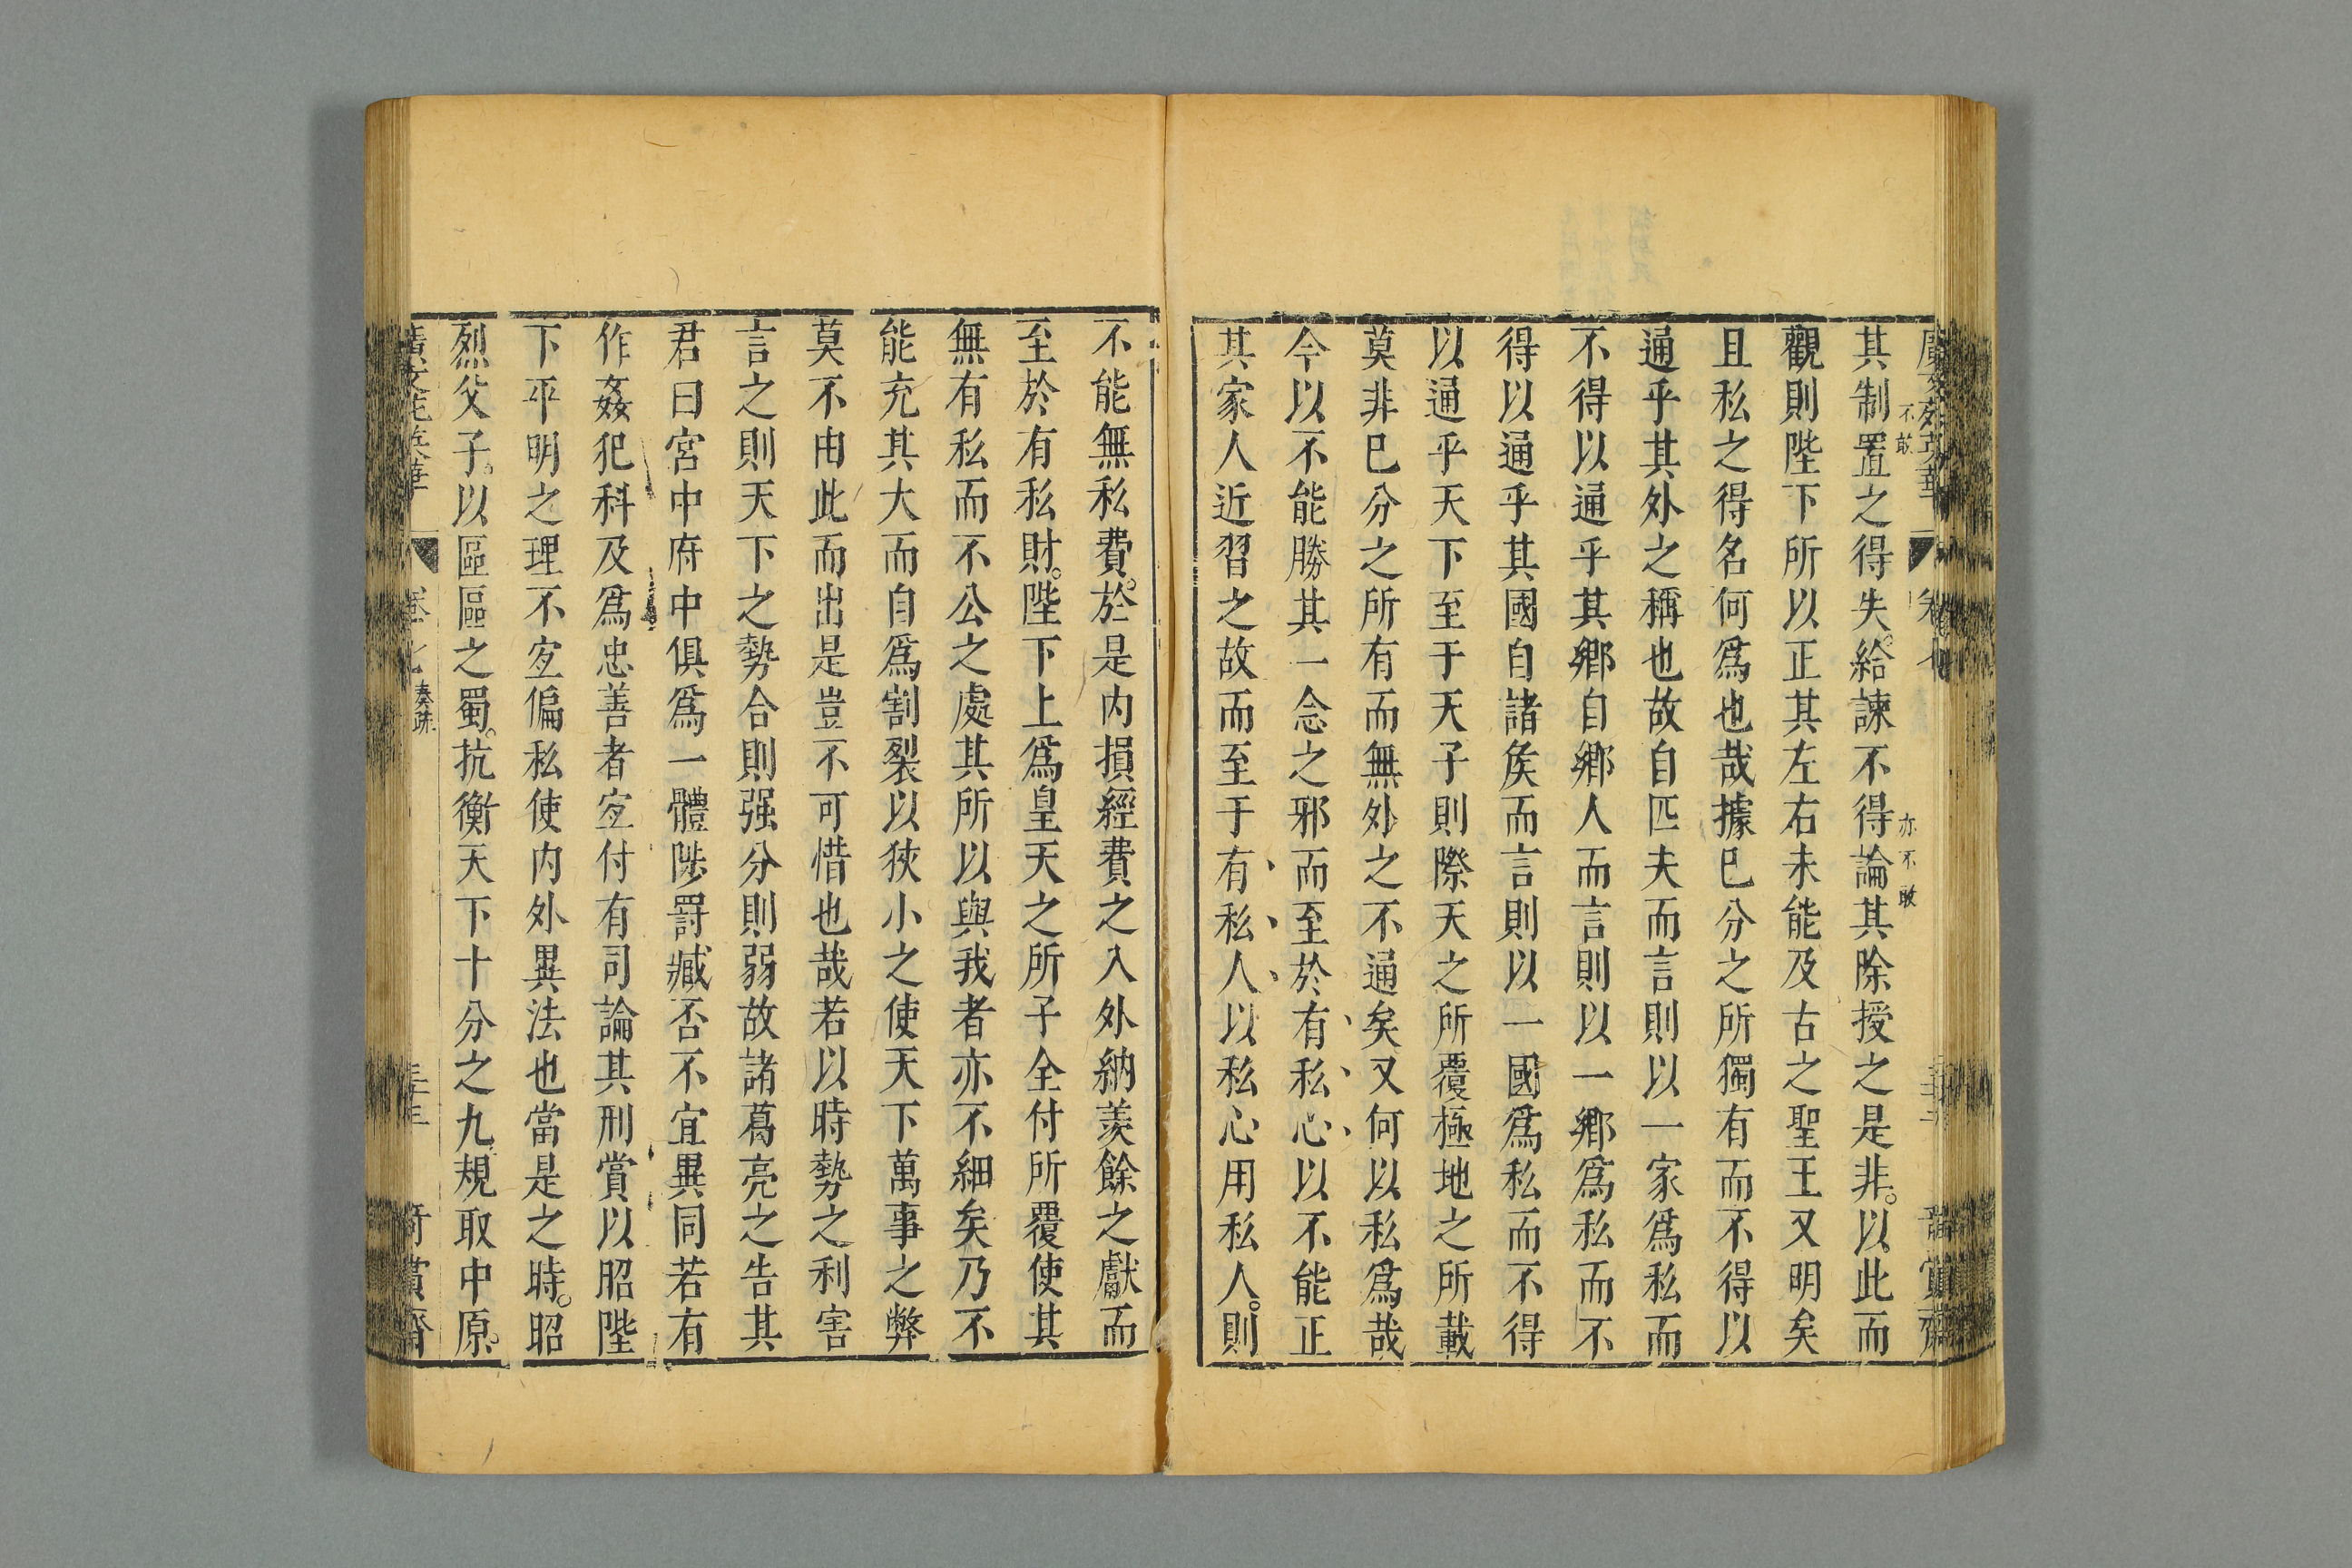 廣文苑英華
卷七
奇賞齋
不敢
亦不敢
其制置之得失給諫不得論其除授之是非以此而
觀則陛下所以正其左右未能及古之聖王又明矣
且私之得名何爲也哉據巳分之所獨有而不得以
通乎其外之稱也故自匹夫而言則以一家爲私而
不得以通乎其鄉自鄉人而言則以一鄉爲私而不
得以通乎其國自諸矦而言則以一國爲私而不得
以通乎天下至于天子則際天之所覆極地之所載
莫非巳分之所有而無外之不通矣又何以私爲哉
今以不能勝其一念之邪而至於有私心以不能正
其家人近習之故而至于有私人以私心用私人則
不能無私費於是内損經費之入外納羨餘之獻而
至於有私財陛下上爲皇天之所子全付所覆使其
無有私而不公之處其所以與我者亦不細矣乃不
能充其大而自爲割裂以狹小之使天下萬事之弊
莫不由此而出是豈不可惜也哉若以時勢之利害
言之則天下之勢合則强分則弱故諸葛亮之告其
君曰宮中府中俱爲一體陟罰臧否不宜異同若有
作姦犯科及爲忠善者宐付有司論其刑賞以昭陛
下平明之理不宐偏私使内外異法也當是之時昭
烈父子以區區之蜀抗衡天下十分之九規取中原
廣文苑英華
卷七
奏疏
三十三
奇賞齋